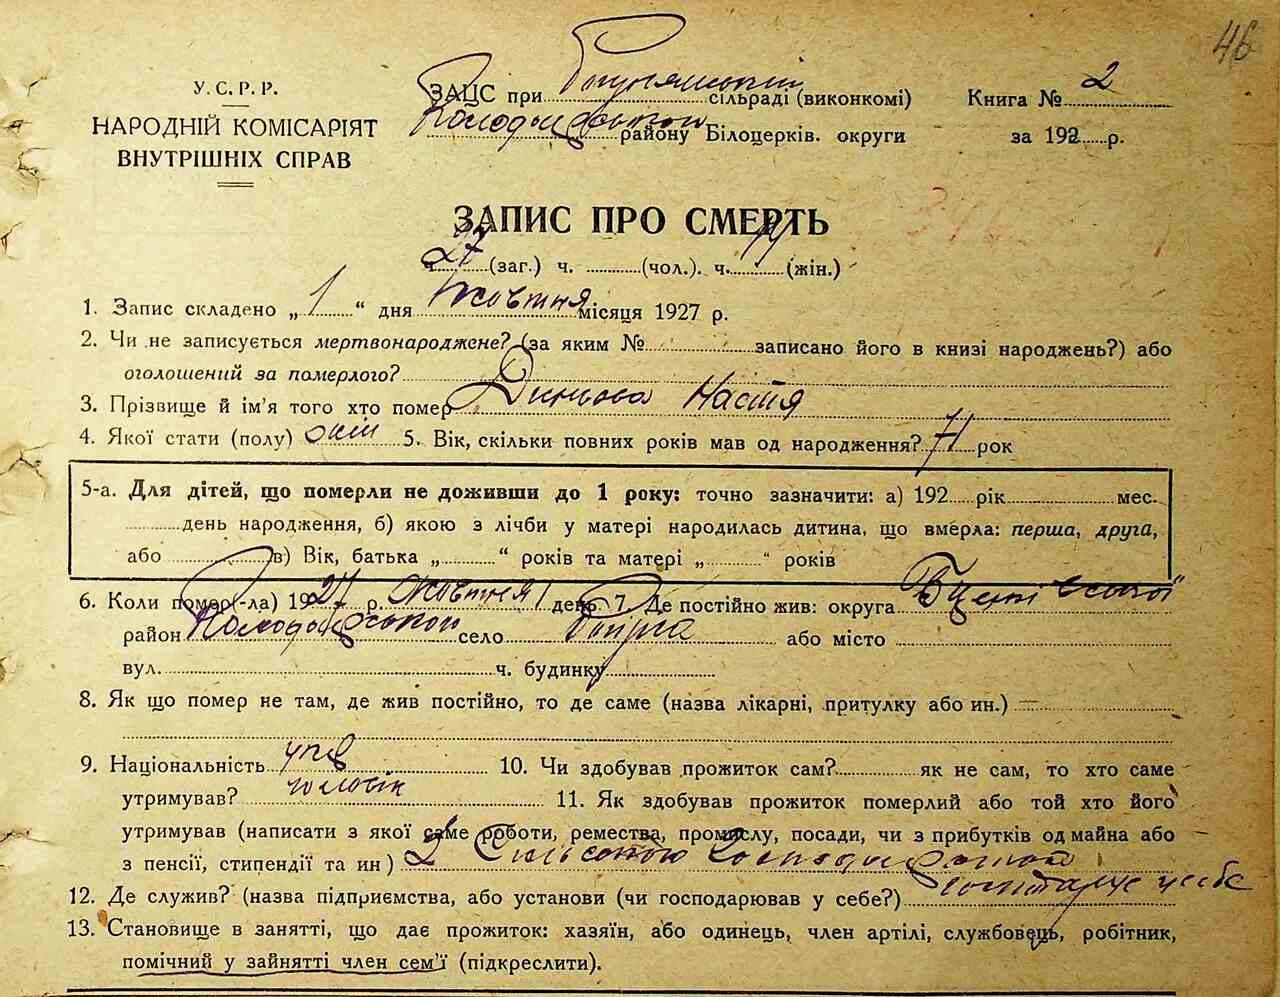 46
У. С. Р. Р.
НАРОДНІЙ КОМІСАРІЯТ
ВНУТРІШНІХ СПРАВ
ЗАЦС при сільраді (виконкомі) Книга № 2
району Білоцерків. округи за 192 р.
ЗАПИС ПРО СМЕРТЬ
ч. 27 (заг.) ч. (чол.). ч. (жін.)
1. Запис складено „ 1 “ дня Жовтня місяця 1927 р.
2. Чи не записується мертвонароджене? (за яким № записано його в книзі народжень?) або
оголошений за померлого?
3. Прізвище й ім’я того хто помер Настя
4. Якої стати (полу) жін 5. Вік, скільки повних років мав од народження? 71 рок
5-а. Для дітей, що померли не доживши до 1 року: точно зазначити: а) 192 рік мес.
день народження, б) якою з лічби у матері народилась дитина, що вмерла: перша, друга,
або в) Вік, батька „ “ років та матері „ “ років
6. Коли помер(-ла) 1927 р. Жовтня 1 день. 7. Де постійно жив: округа
район село або місто
вул. ч. будинку
8. Як що помер не там, де жив постійно, то де саме (назва лікарні, притулку або ин.)
9. Національність укр 10. Чи здобував прожиток сам? як не сам, то хто саме
утримував? чоловік 11. Як здобував прожиток померлий або той хто його
утримував (написати з якої саме роботи, ремества, промислу, посади, чи з прибутків од майна або
з пенсії, стипендії та ин)
12. Де служив? (назва підприємства, або установи (чи господарював у себе?) у себе
13. Становище в занятті, що дає прожиток: хазяїн, або одинець, член артілі, службовець, робітник,
помічний у зайнятті член сем’ї (підкреслити).